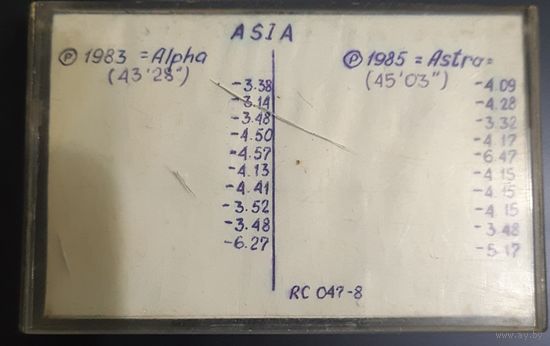 ASIA
Ⓟ 1983 = Alpha
(43'28")
-3.38
-3.14
-3.48
-4.50
-4.57
-4.13
-4.41
-3.52
-3.48
-6.27
Ⓟ 1985 = Astra=
(45'03")
-4.09
-4.28
-3.32
-4.17
-6.47
-4.15
-4.15
-4.15
-3.48
-5.17
RC 047-8
www.ay.by